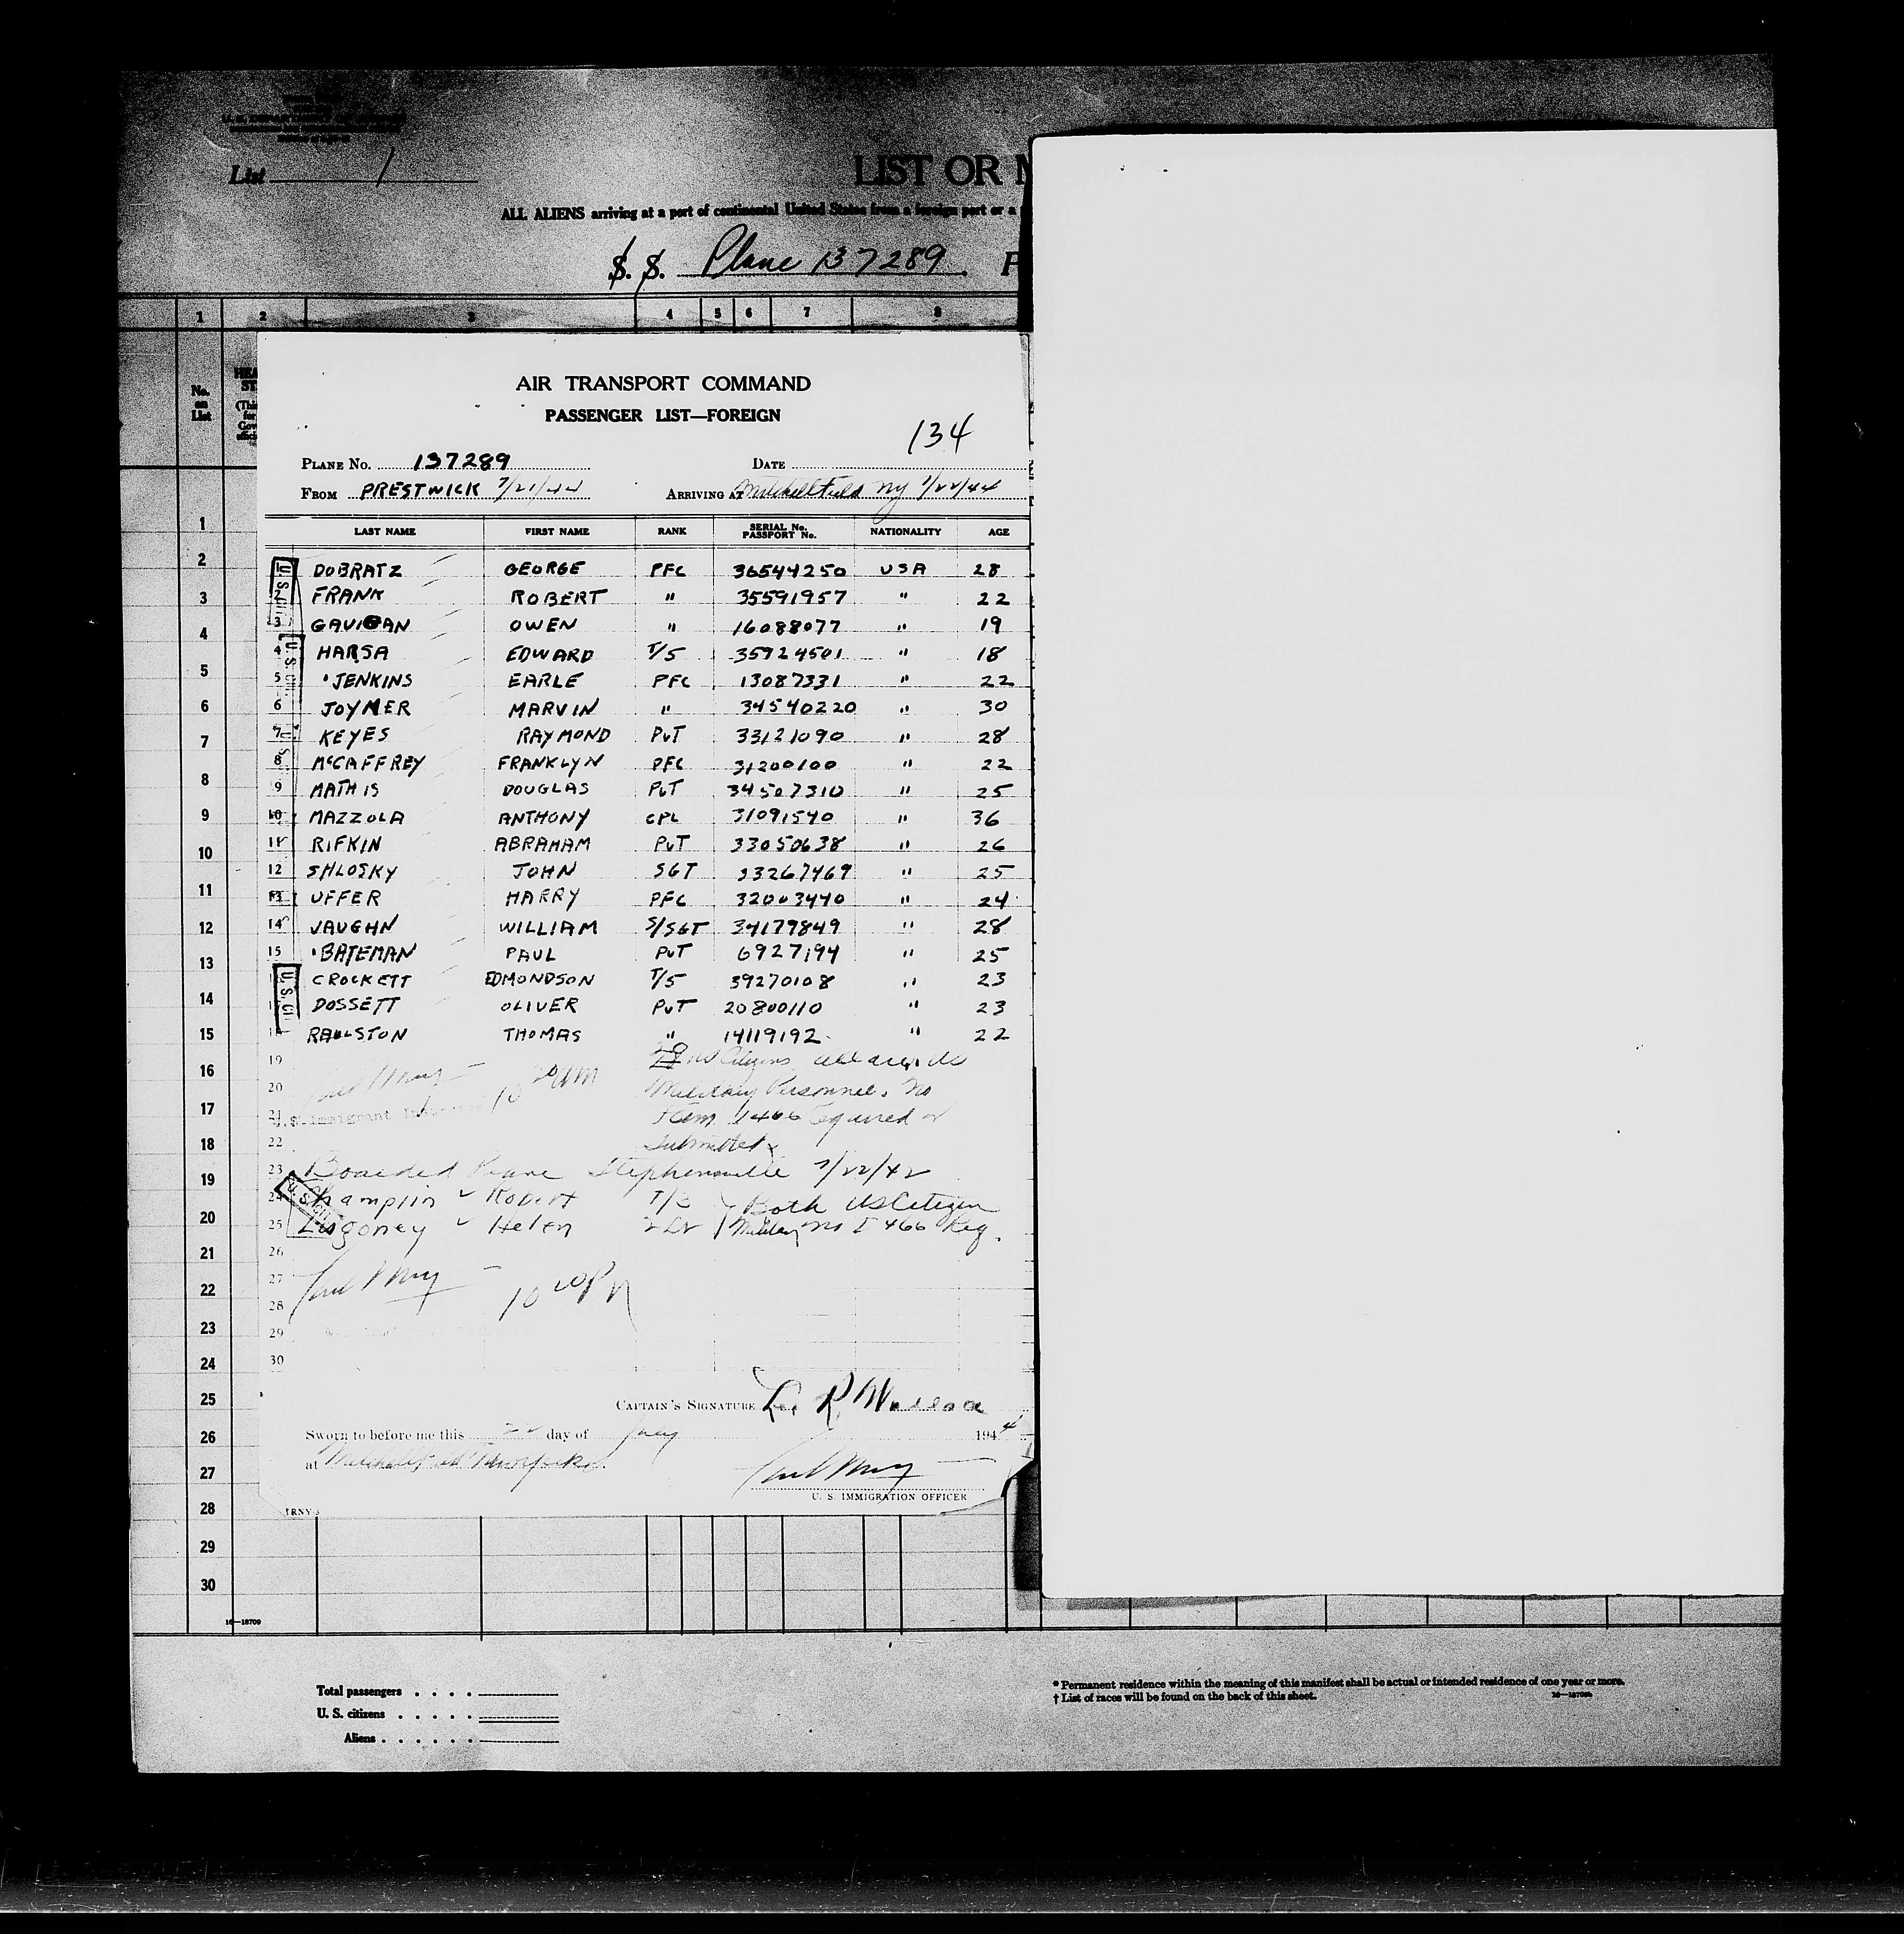 List 1
LIST OR M
ALL ALIENS arriving at a port of continental United States from a foreign port or a
S. S. Plane 137289 F
1 2 3 4 5 6 7 8
No. on List
AIR TRANSPORT COMMAND
PASSENGER LIST—FOREIGN
134
PLANE NO. 137289 DATE
FROM PRESTWICK 7/21/44 ARRIVING AT Mitchell Field NY 7/22/44
LAST NAME FIRST NAME RANK SERIAL No. PASSPORT No. NATIONALITY AGE
1 DOBRATZ GEORGE PFC 36544250 USA 28
2 FRANK ROBERT " 35591957 " 22
3 GAVIGAN OWEN " 16088077 " 19
4 HARSA EDWARD T/5 35924501 " 18
5 JENKINS EARLE PFC 13087331 " 22
6 JOYNER MARVIN " 34540220 " 30
7 KEYES RAYMOND PVT 33121090 " 28
8 McCAFFREY FRANKLYN PFC 31200100 " 22
9 MATHIS DOUGLAS PVT 34507310 " 25
10 MAZZOLA ANTHONY CPL 31091540 " 36
11 RIFKIN ABRAHAM PVT 33050638 " 26
12 SHLOSKY JOHN SGT 33267469 " 25
13 UFFER HARRY PFC 32003440 " 24
14 VAUGHN WILLIAM S/SGT 34179849 " 28
15 BATEMAN PAUL PVT 6927194 " 25
CROCKETT EDMONDSON T/5 39270108 " 23
17 DOSSETT OLIVER PVT 20800110 " 23
18 RAULSTON THOMAS " 14119192 " 22
19 US Citizens all are US
20 Military Personnel. No
21 U.S. Immigrant Inspector Form I466 required or
22 Submitted
23 Boarded Plane Stephenville 7/22/42
24 Champlin Robert T/3 Both US Citizen
25 Helen 2 Lt Military no I 466 Req.
26
27
28 10 20 PM
29
30
CAPTAIN'S SIGNATURE L. R.
Sworn to before me this 22 day of July 1944
at Mitchell Field New York
U. S. IMMIGRATION OFFICER
1
2
3
4
5
6
7
8
9
10
11
12
13
14
15
16
17
18
19
20
21
22
23
24
25
26
27
28
29
30
16—18709
Total passengers
U. S. citizens
Aliens
* Permanent residence within the meaning of this manifest shall be actual or intended residence of one year or more.
† List of races will be found on the back of this sheet.
16—18709